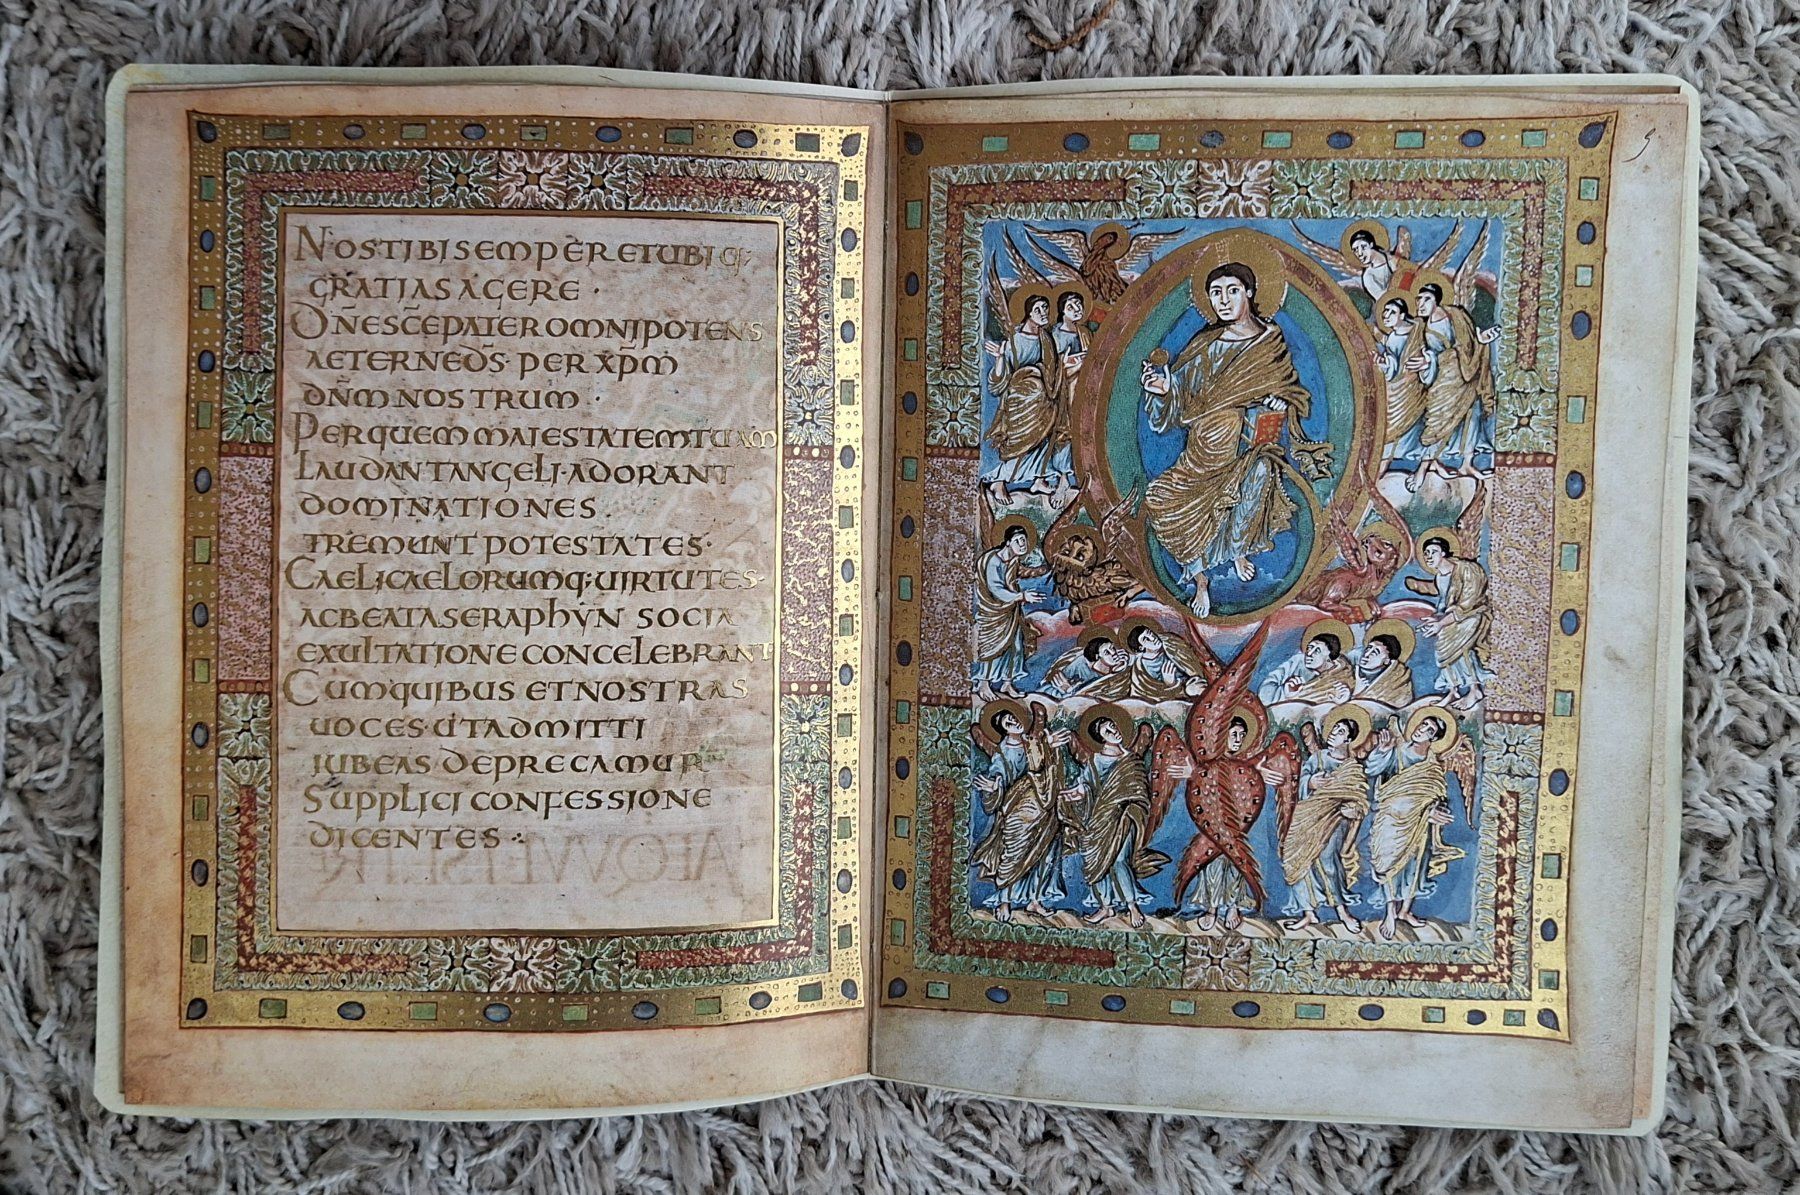 NOSTIBISEMPERETUBIQ;
GRATIAS AGERE ·
DN̄ESC̄EPATEROMNIPOTENS
AETERNEDS̄· PER XP̄M
DN̄M NOSTRUM ·
PERQUEM MAIESTATEMTUAM
LAUDANTANGELI·ADORANT
DOMINATIONES
TREMUNT POTESTATES·
CAELICAELORUMQ;UIRTUTES·
ACBEATASERAPHYN SOCIA
EXULTATIONE CONCELEBRANT
CUMQUIBUS ETNOSTRAS
UOCES·UTADMITTI
IUBEAS DEPRECAMUR
SUPPLICI CONFESSIONE
DICENTES ∴
5